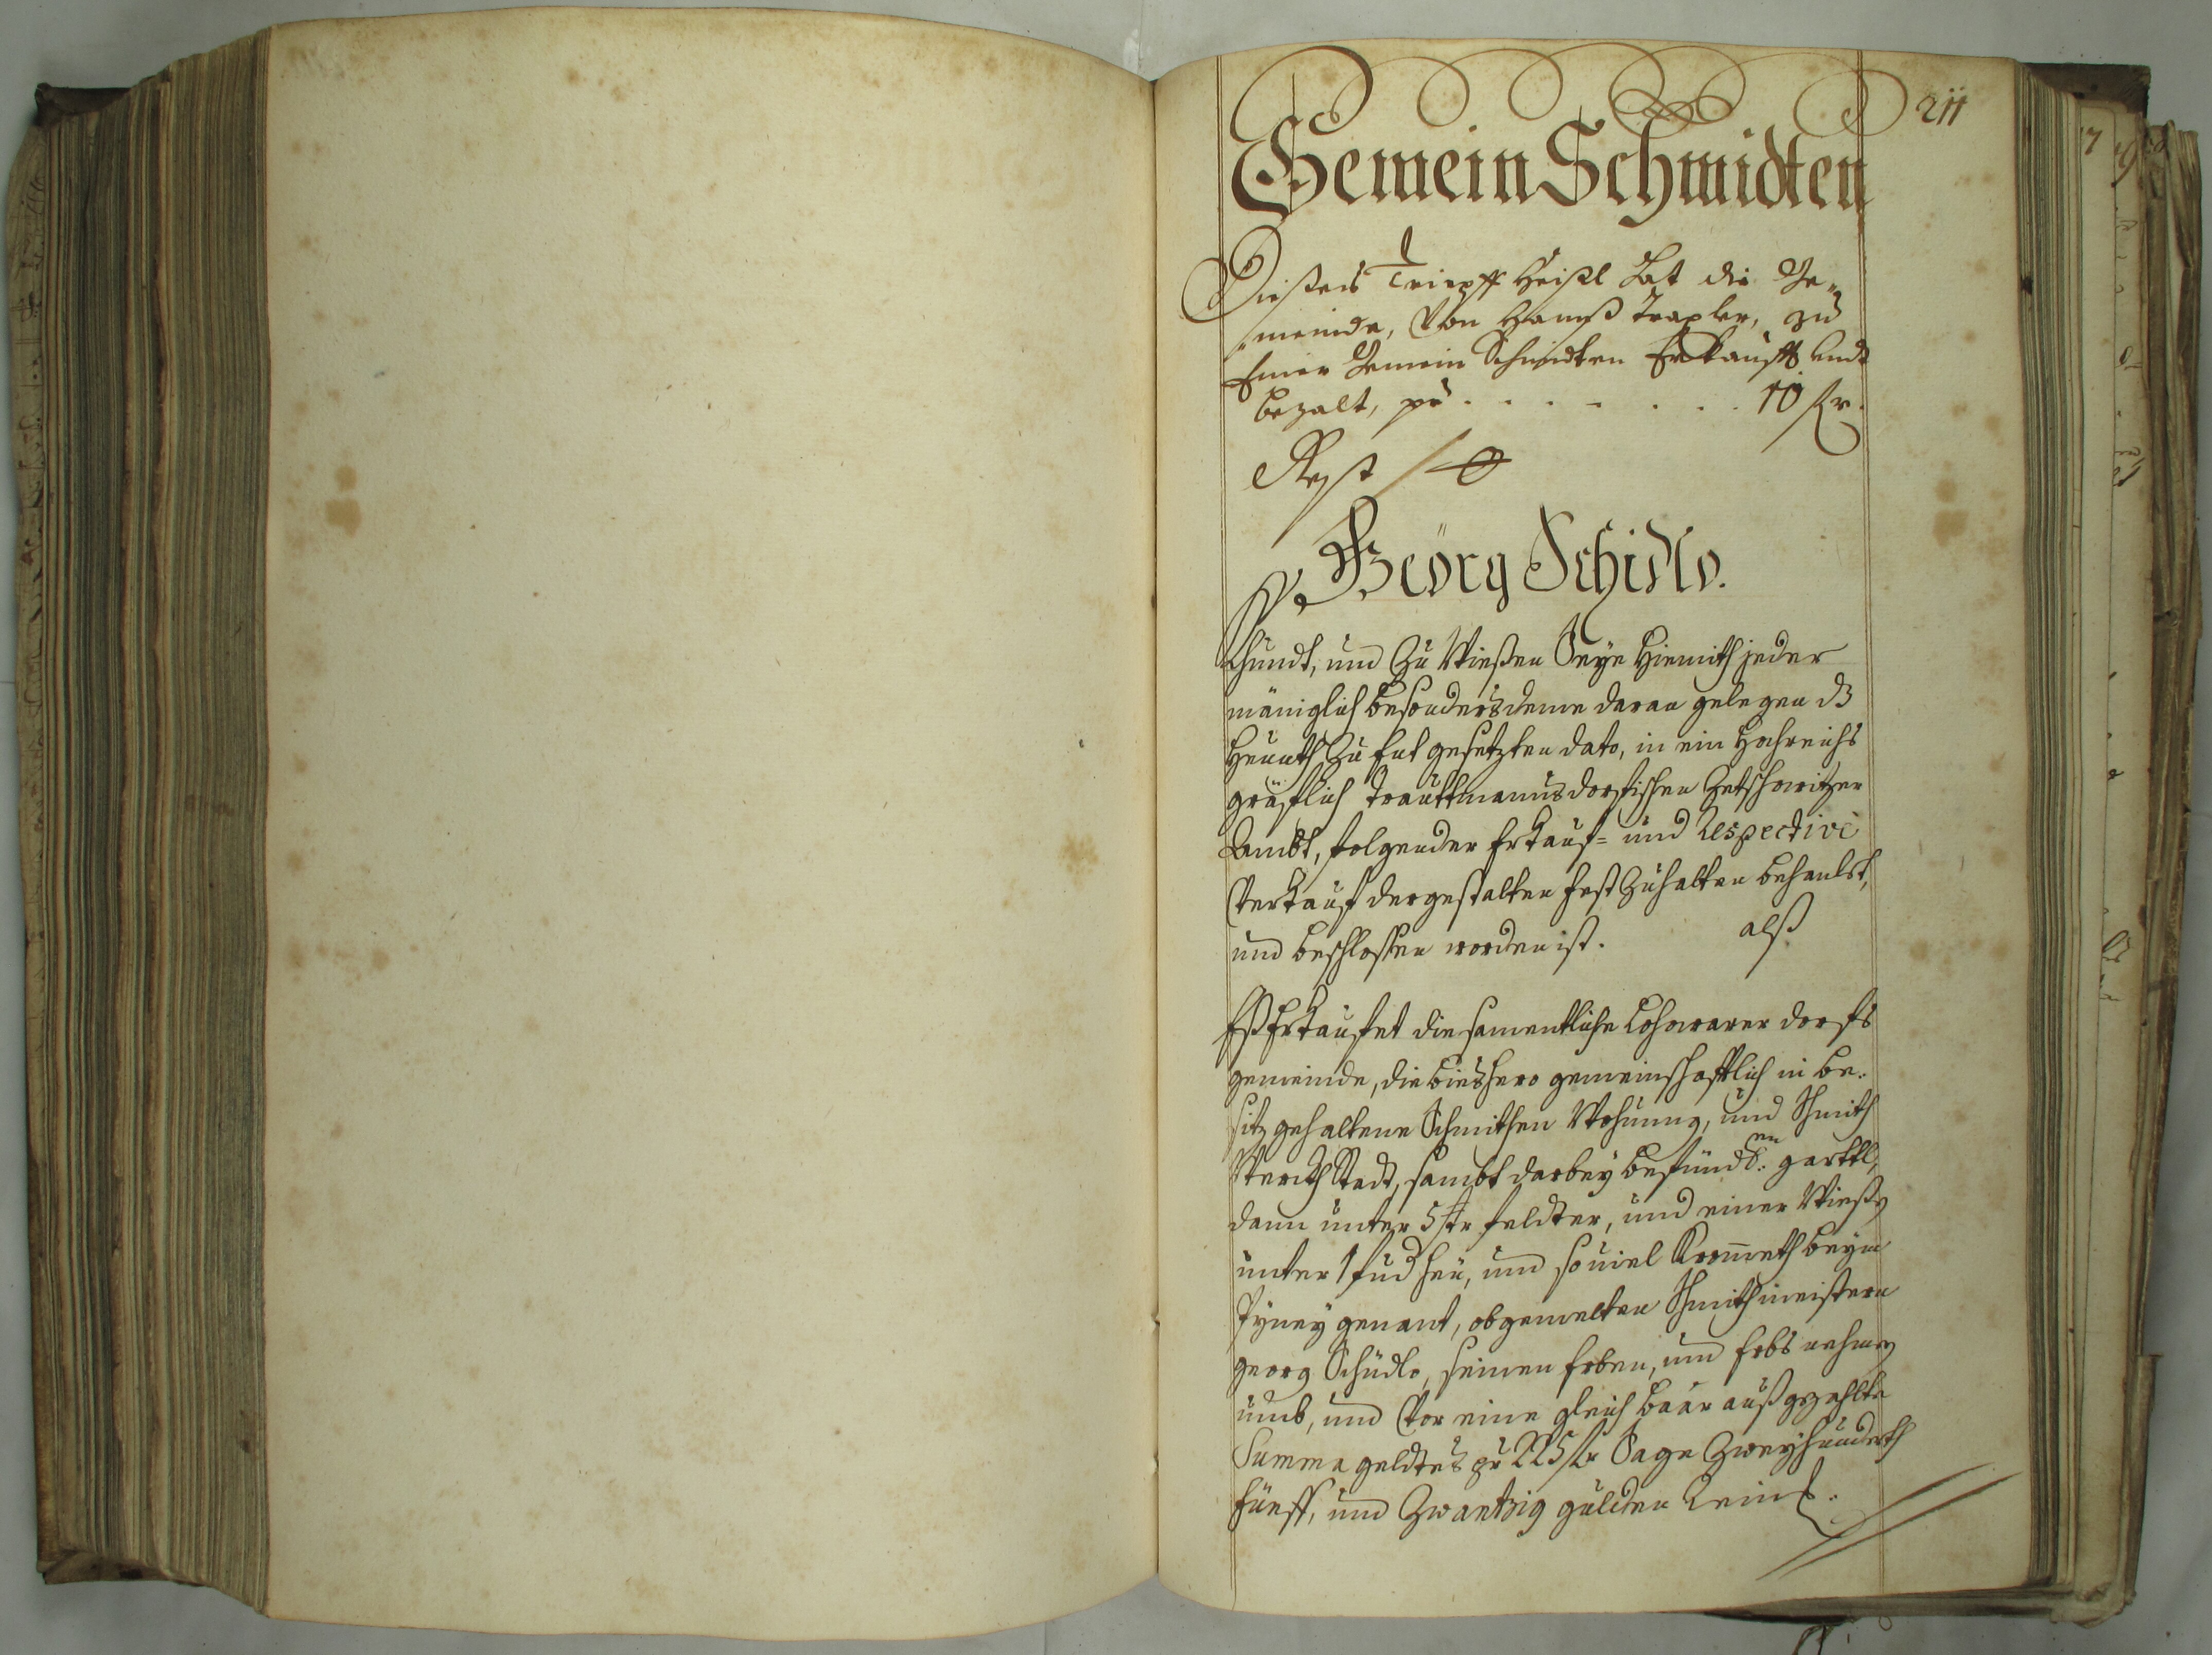 211
Gemein Schmidten
Dießers Tripff Heißl Hat die Ge-
meinde, Von Hannß Trapler, zu
Einer Gemein Schmidten Erkaufft undt
bezalt, pr . . . . . . . 10 ßr.
Rest / 0
Geörg Schidlo.
Khundt, und Zu Wießen Seye Hiemith jeder
mäniglich besonders deme daran gelegen dz
Heunth Zu Ent gesetzten dato, in ein Hochreichs
gräflich Trauttmannsdorfischen Zetschowitzer
Ambt, folgender Erkauf- und Respective
Verkauf dergestalten fest Zuhalten behandlet,
und beschlossen worden ist. alß
Eß Erkaufet die samentliche Lohowarer dorfs
gemeinde, die bieshero gemeinschafftlich in be-
sitz gehaltene Schmithen Wohnung, und Schmith
Werckh Stadt, sambt darbey befundd.en garttl,
dann unter 5 str feldter, und einer Wießen
unter 1 fud heu, und souiel Krometh beym
genant, obgemelten Schmithmeistern
georg Schüdlo, seinen Erben, und Erbsnehmen
umb, und Vor eine gleich baar außgezahlte
Summa geldtes pr 225 ßr Sage Zweyhunderth
fünff, und Zwantzig gulden Rein.